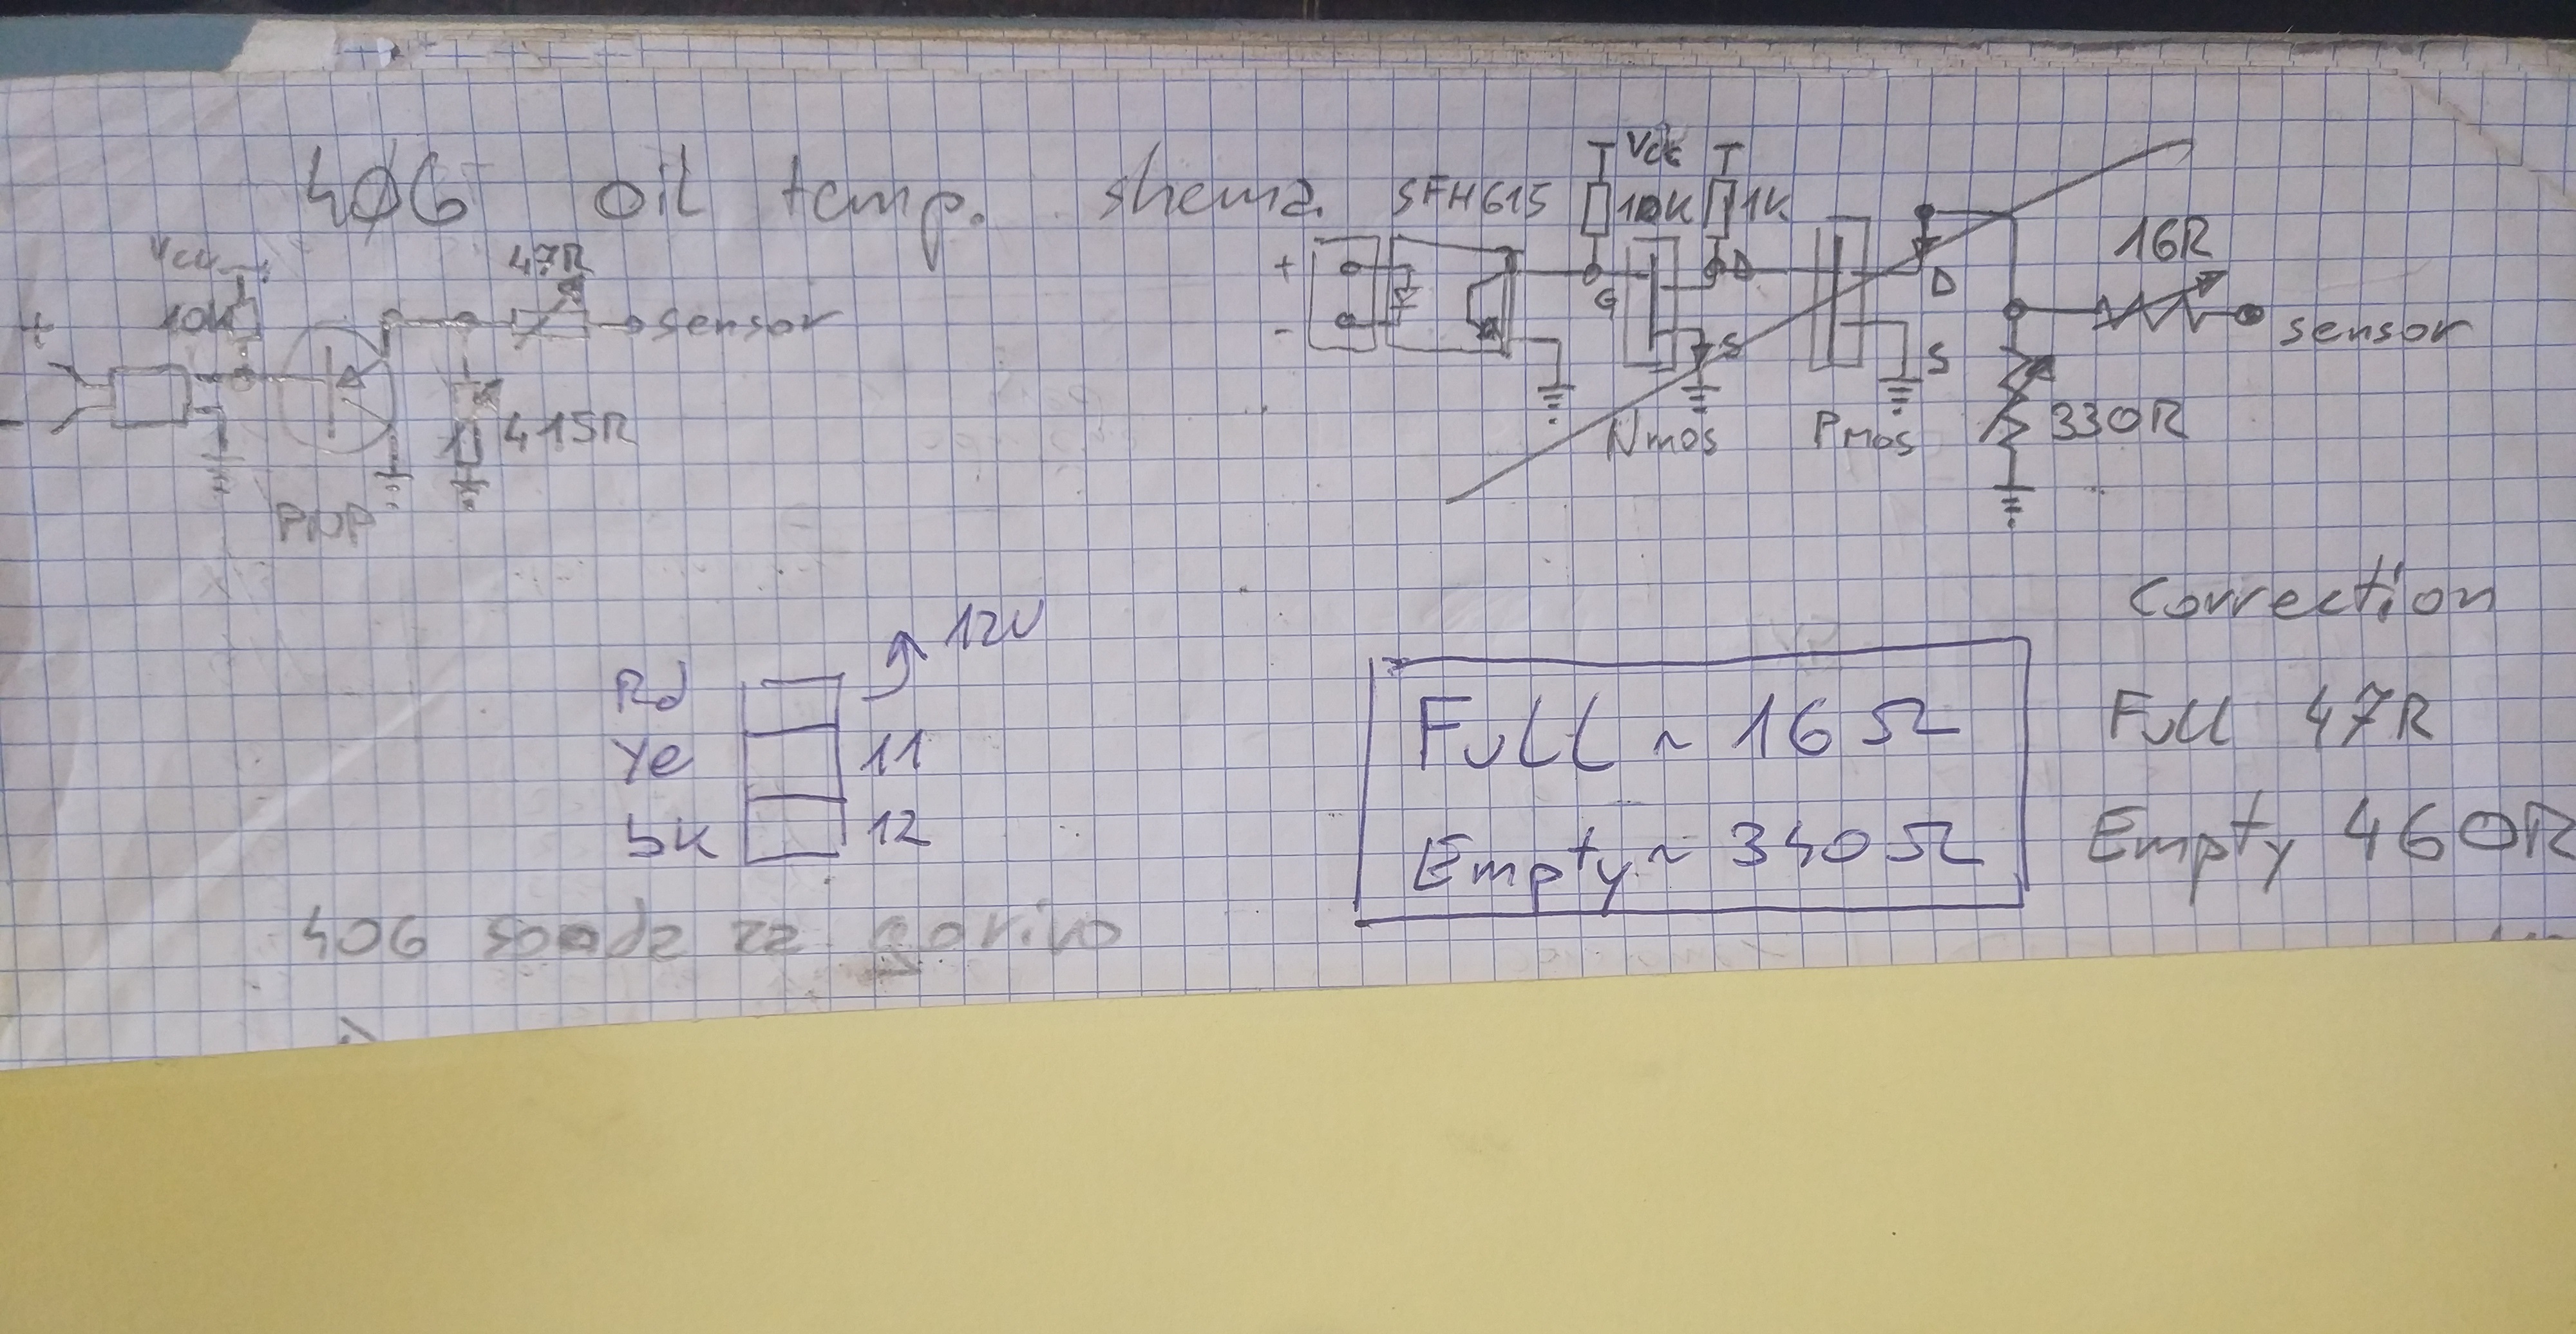 406 oil temp. shema
SFH615
Vcc
10K
1K
Vcc
10K
47R
+
-
sensor
415R
PNP
+
-
G
D
S
Nmos
D
S
Pmos
16R
sensor
330R
12V
Rd
Ye 11
bk 12
Correction
Full ~ 16 Ω
Empty ~ 340 Ω
Full 47R
Empty 460R
406 sonda za gorivo